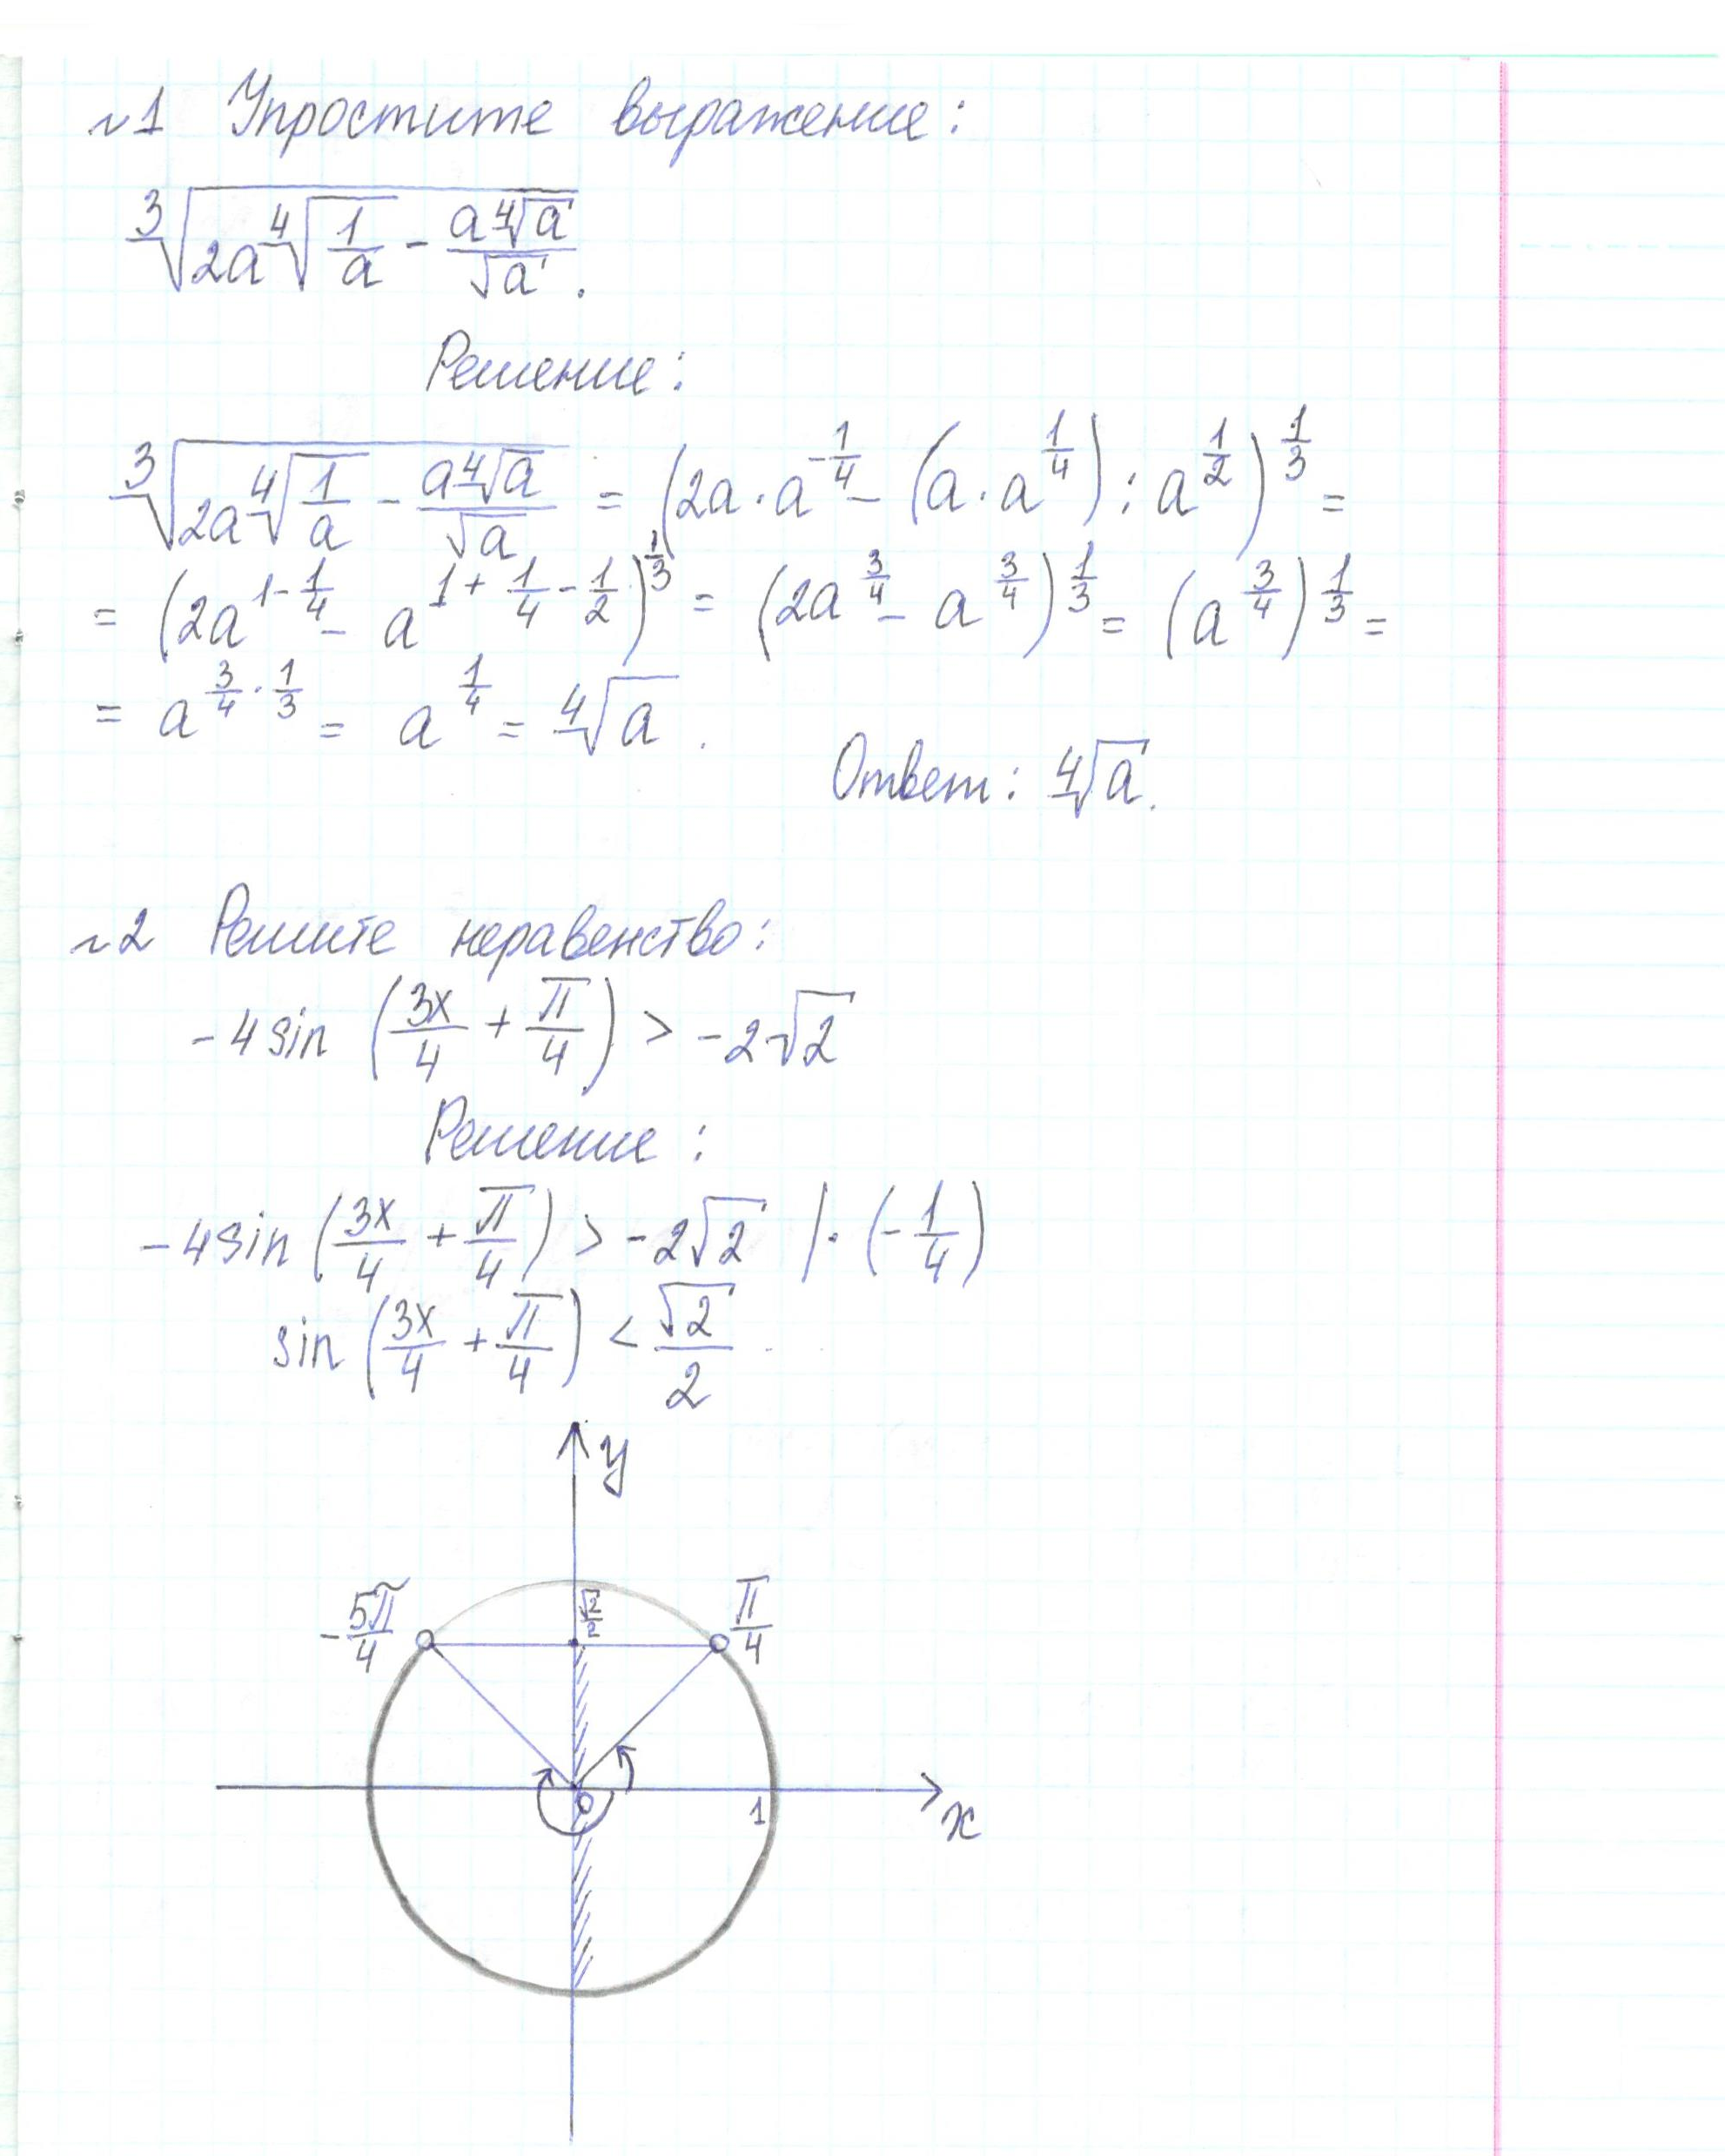 №1 Упростите выражение:
∛(2a ∜(1/a) - (a∜a)/√a).
Решение:
∛(2a ∜(1/a) - (a∜a)/√a) = (2a·a^(-1/4) - (a·a^(1/4)) : a^(1/2))^(1/3) =
= (2a^(1-1/4) - a^(1+1/4-1/2))^(1/3) = (2a^(3/4) - a^(3/4))^(1/3) = (a^(3/4))^(1/3) =
= a^(3/4·1/3) = a^(1/4) = ∜a.
Ответ: ∜a.
№2 Решите неравенство:
-4sin (3x/4 + π/4) > -2√2
Решение:
-4sin (3x/4 + π/4) > -2√2 |·(-1/4)
sin (3x/4 + π/4) < √2/2
y
-5π/4 √2/2 π/4
0 1 x